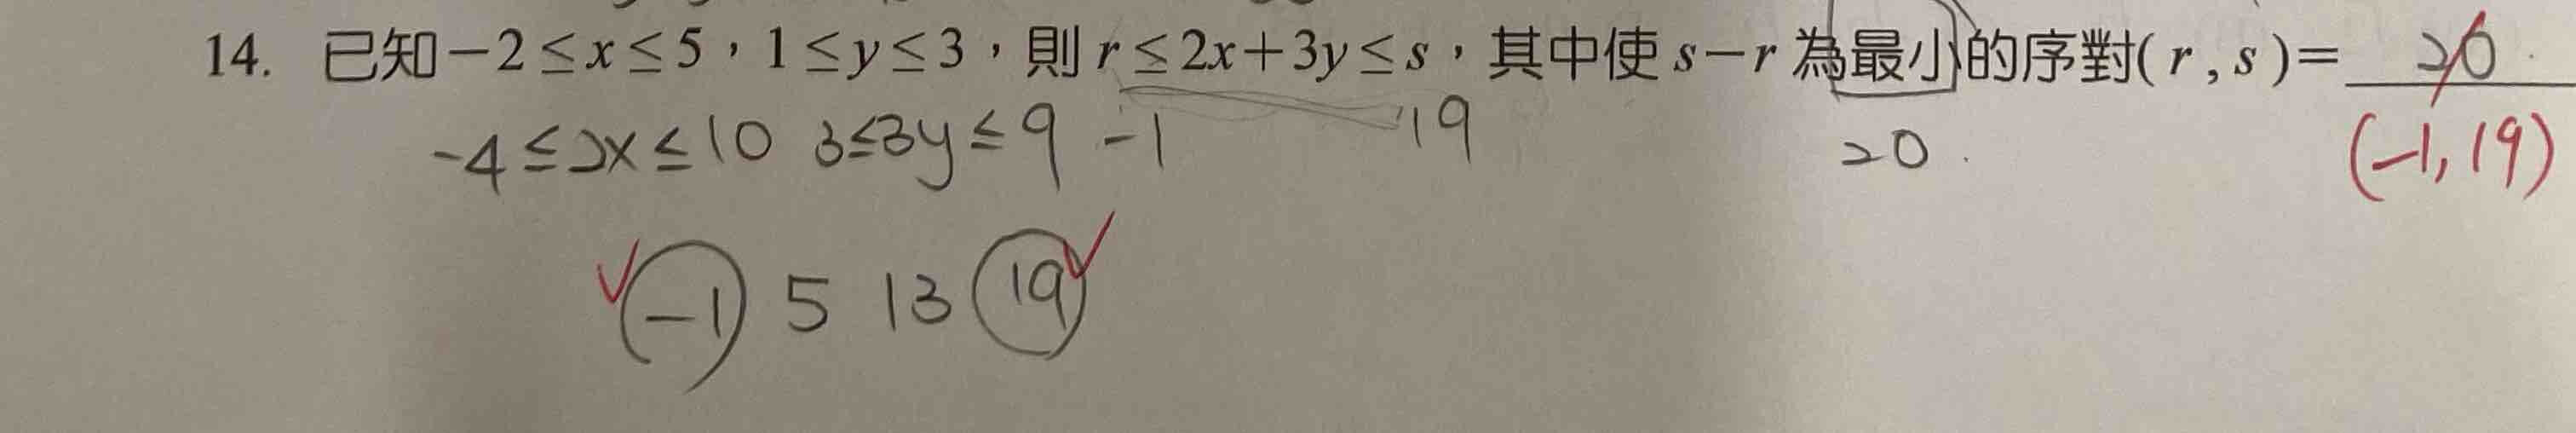 14. 已知−2≤x≤5，1≤y≤3，則 r≤2x+3y≤s，其中使 s−r 為最小的序對( r , s )= 20
-4≤2x≤10 3≤3y≤9 -1 19 20. (-1, 19)
-1 5 13 19